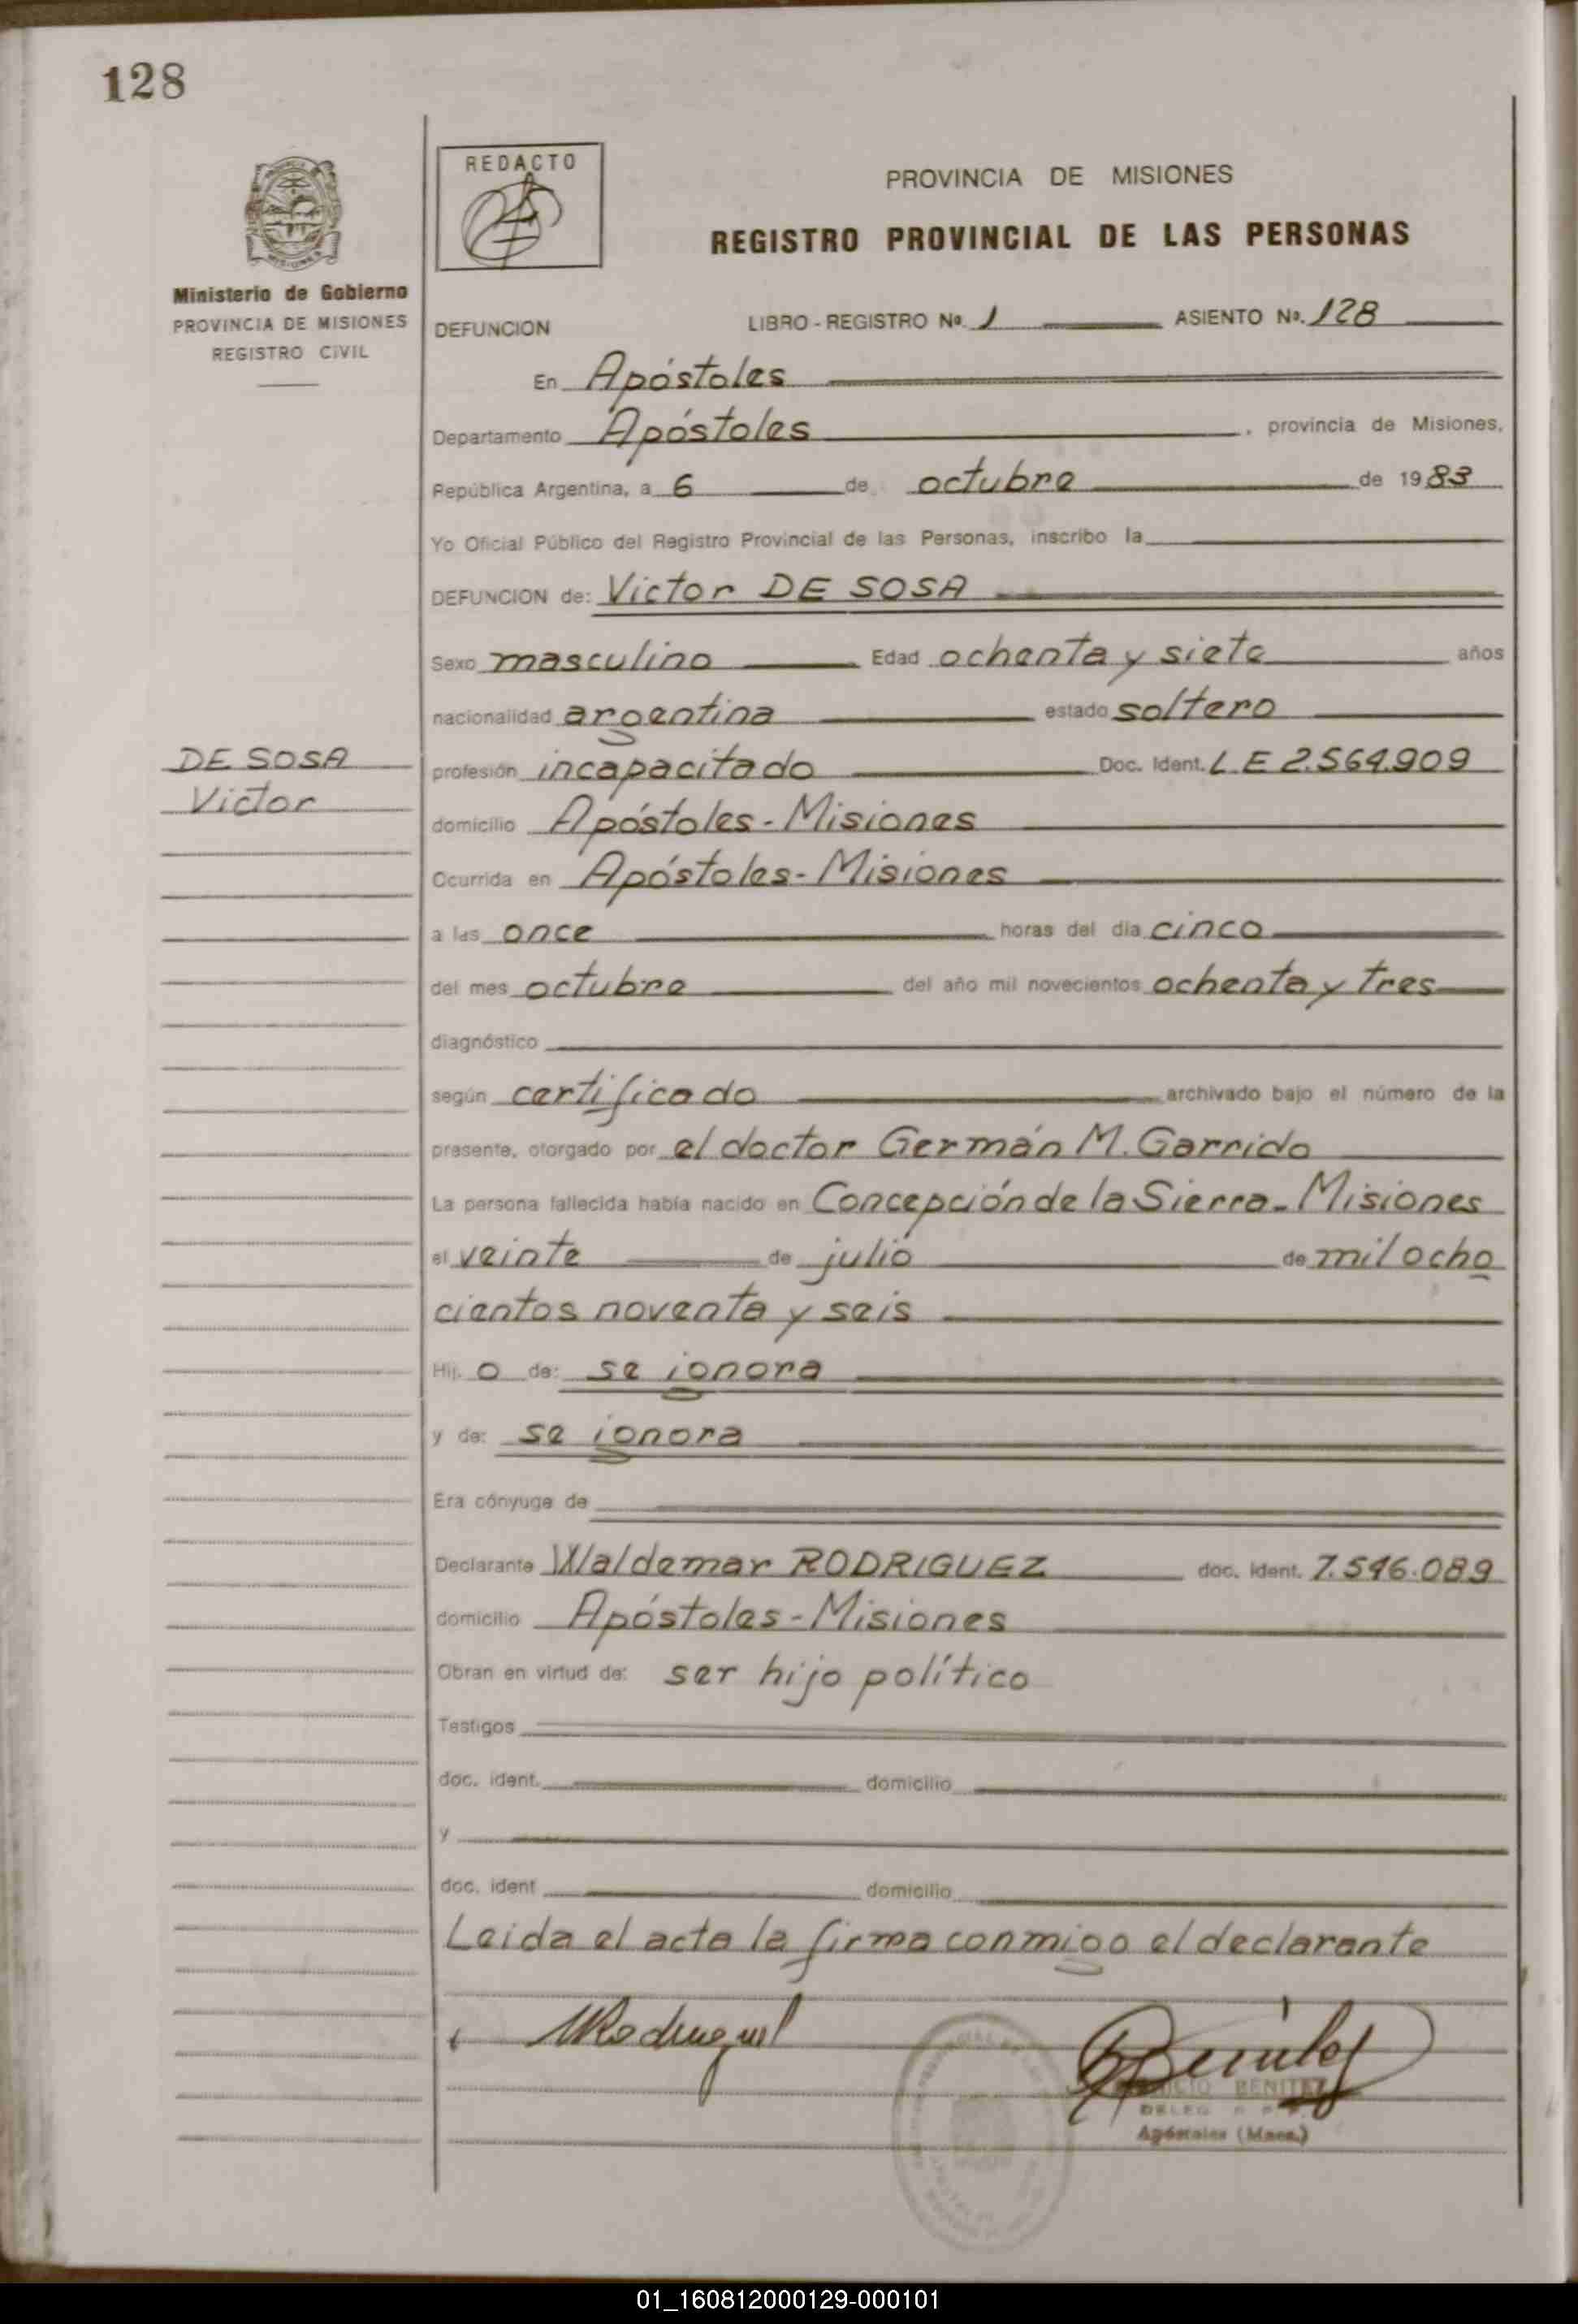 128
REDACTO
PROVINCIA DE MISIONES
REGISTRO PROVINCIAL DE LAS PERSONAS
Ministerio de Gobierno
PROVINCIA DE MISIONES
REGISTRO CIVIL
DEFUNCION LIBRO - REGISTRO Nº. 1 ASIENTO Nº. 128
En Apóstoles
Departamento Apóstoles, provincia de Misiones,
República Argentina, a 6 de octubre de 1983
Yo Oficial Público del Registro Provincial de las Personas, inscribo la
DEFUNCION de: Victor DE SOSA
Sexo masculino Edad ochenta y siete años
nacionalidad argentina estado soltero
DE SOSA
Victor
profesión incapacitado Doc. Ident. L E 2.564.909
domicilio Apóstoles - Misiones
Ocurrida en Apóstoles - Misiones
a las once horas del día cinco
del mes octubre del año mil novecientos ochenta y tres
diagnóstico
según certificado archivado bajo el número de la
presente, otorgado por el doctor Germán M. Garrido
La persona fallecida había nacido en Concepción de la Sierra - Misiones
el veinte de julio de mil ocho
cientos noventa y seis
Hij. o de: se ignora
y de: se ignora
Era cónyuge de
Declarante Waldemar RODRIGUEZ doc. ident. 7.546.089
domicilio Apóstoles - Misiones
Obran en virtud de: ser hijo político
Testigos
doc. ident. domicilio
y
doc. ident domicilio
Leida el acta la firma conmigo el declarante
BENITEZ
DELEG
Apóstoles (Mnes.)
01_160812000129-000101